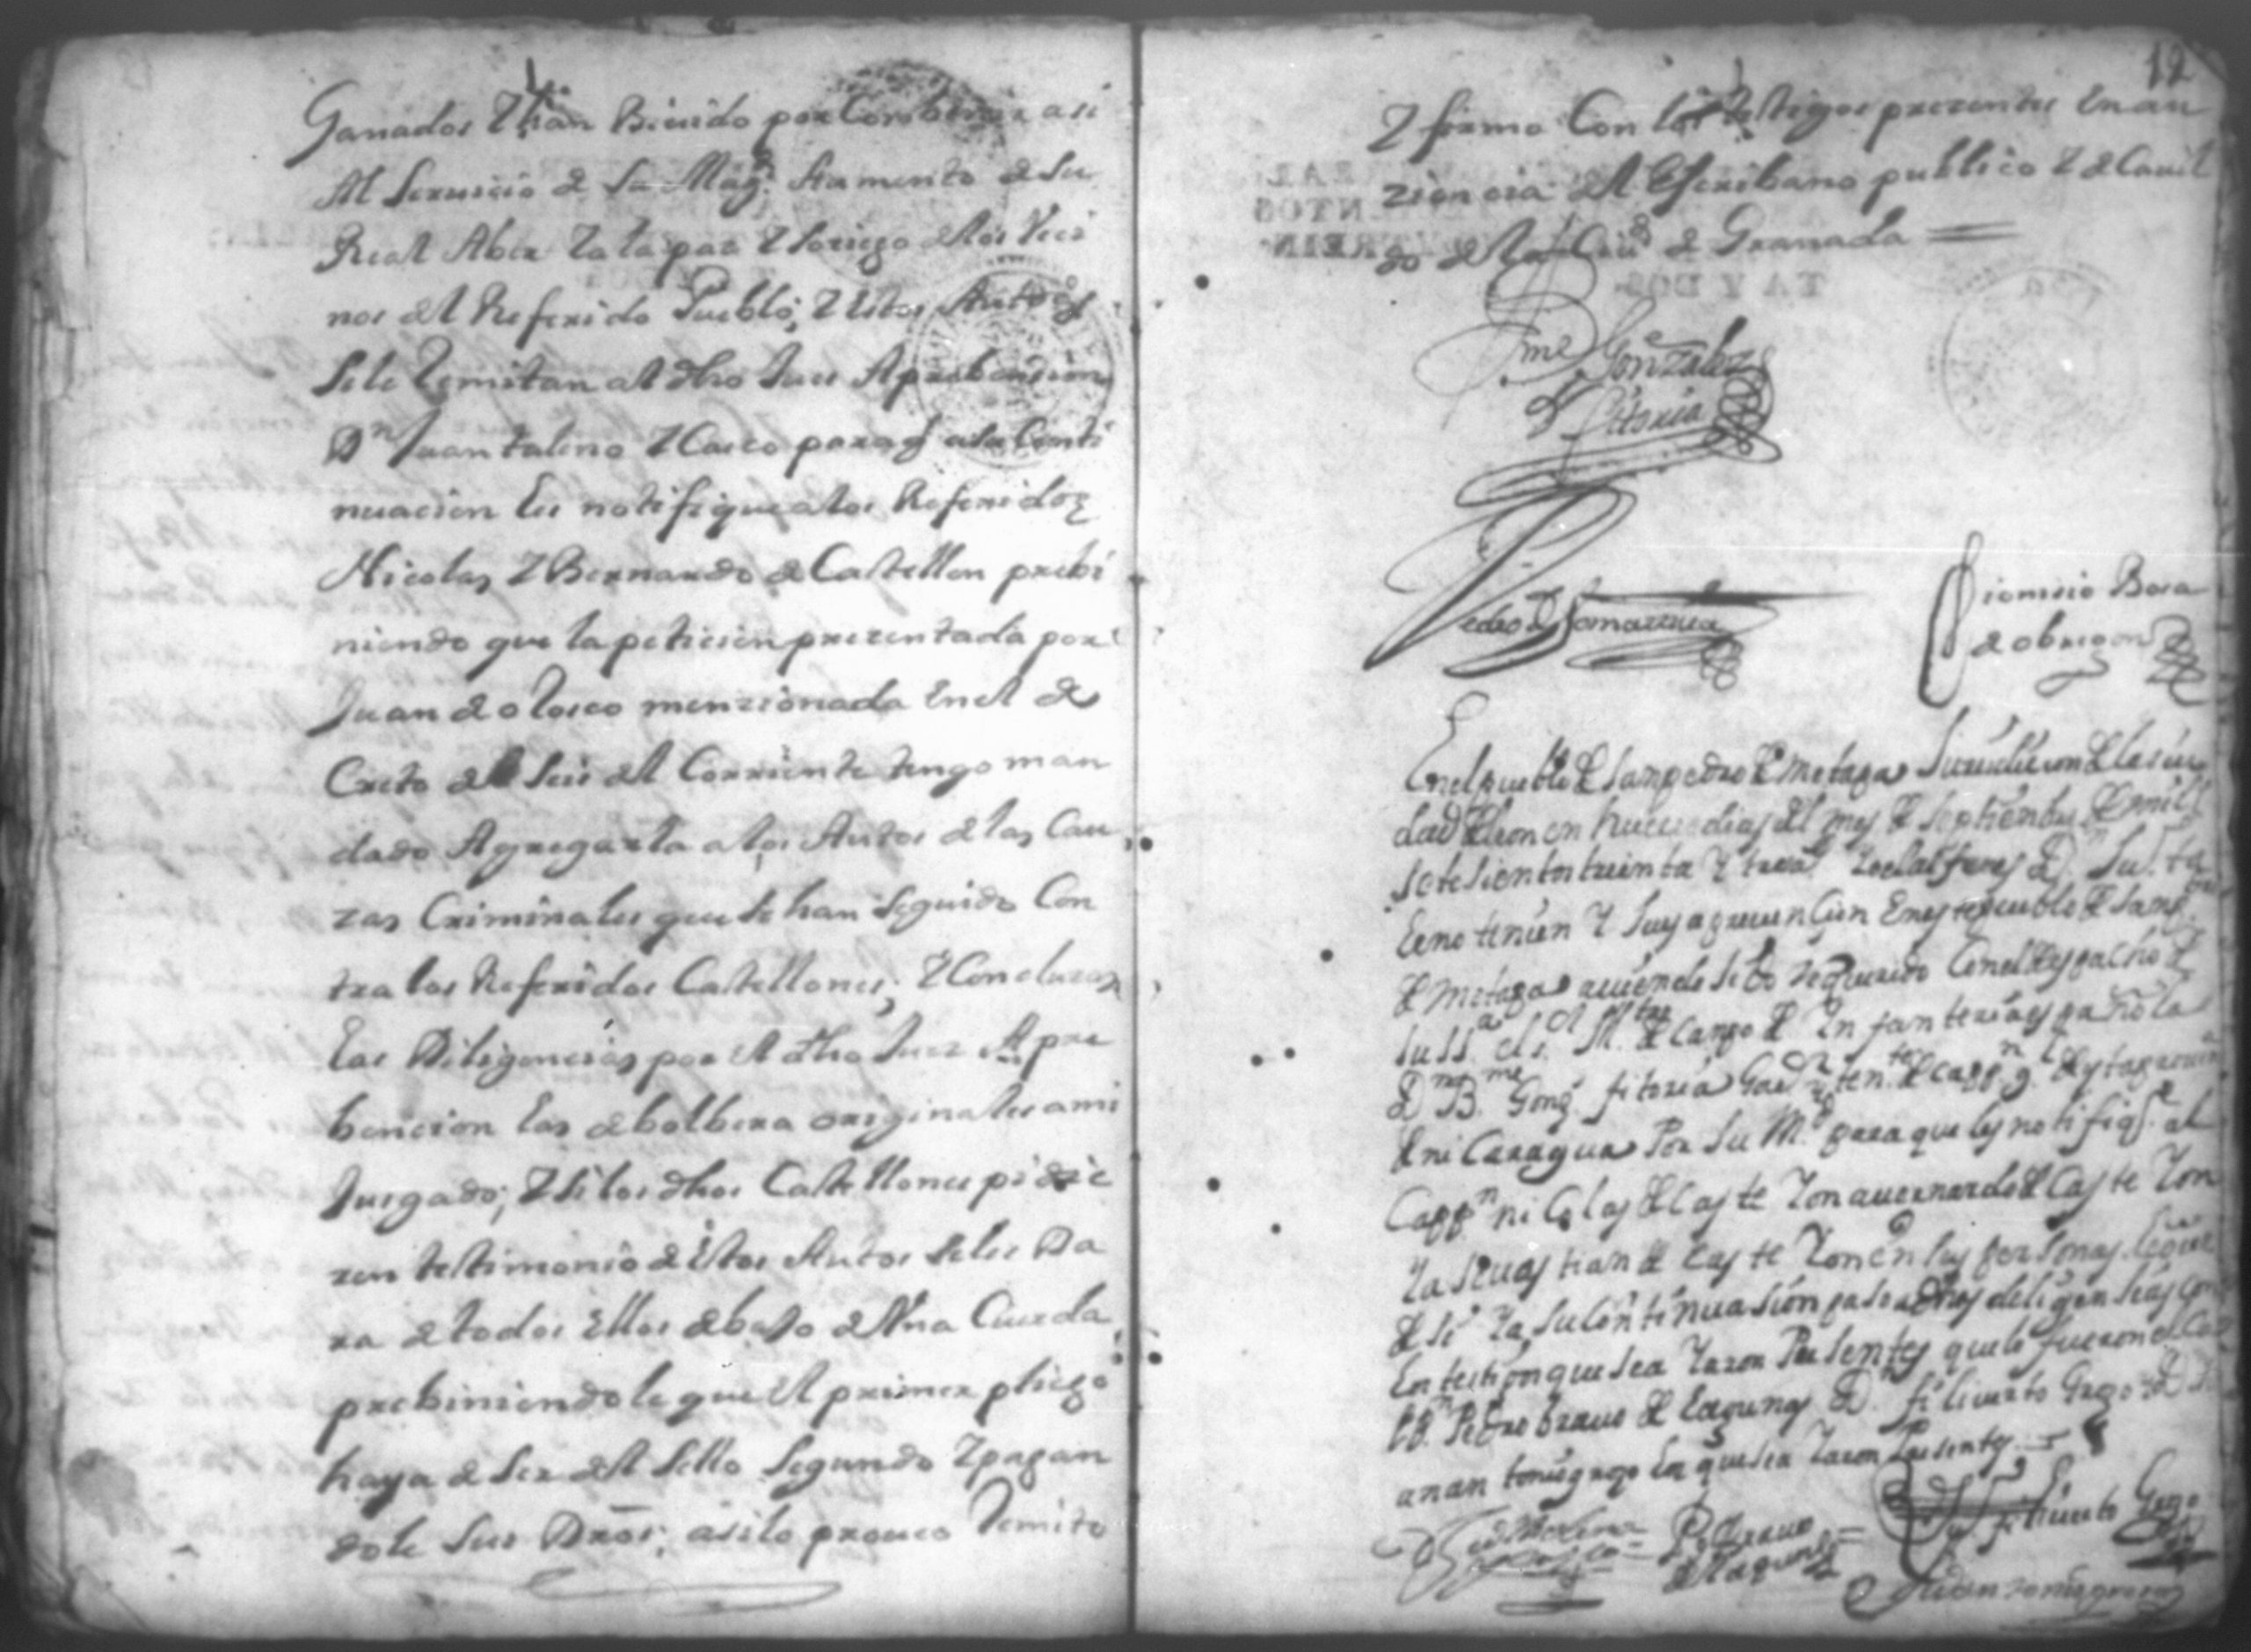 Ganados Y han Biuido por Conbenir asi
Al Seruicio de Su Magd. Aumento de Su
Real Aber Y a la paz Y Sosiego de los Veci
nos del Referido Pueblo; Y estos Autos
Se le Remitan al dho Jues Aprebension
Dn Juan taleno Y Casco para q a su Conti
nuacion les notifique a los Referidos
Nicolas Y Bernardo de Castellon prebi
niendo que la peticion prezentada por
Juan de orosco menzionada en el de
Creto del Seis del Corriente tengo man
dado Agregarla a los Autos de las Cau
zas Criminales que se han Seguido Con
tra los Referidos Castellones; Y Conclusas
las Diligencias por el dho Juez Apre
bencion las debolbera originales a mi
Jusgado; Y Si los dhos Castellones pidie
ren testimonio de estos Autos Se les Da
ra de todos ellos debajo de Una Cuerda
prebiniendole que el primer pliego
haya de Ser del Sello Segundo Y pagan
dole Sus Dros; asi lo proueo Remito
12
Y firmo Con los testigos prezentes en au
ziencia del Escribano publico Y de Cauil
do de la Ciud de Granada
Bme Gonzalez
Fitoria
Pedro Samarriba
Dionisio Bosa
de obregon
En el pueblo de San pedro de metapa Jurisdicion de la siu
dad de leon en nueue dias del mes de septienbre de mill
setesientos treinta Y tres Yo el alferes Dn Jun ta
leno tenien Y Jues a preuensión en este pueblo de San po
de metapa auiendo sido Requerido Con el despacho de
su Sa. el Sr. Mtre de Canpo de Infanteria española
Dn Bme Gonz fitoria Gour Y tente de Cappn Gl de esta prouina
de niCaragua Por Su Md para que les notifiqe al
Cappn niColas de Caste Yon a uernardo de Caste Yon
Y a seuastian de Caste Yon en sus personas
Y a su Continuasion pase a dhas deligensias con
los testigos que sea Yaron Presentes que lo fueron el Ca
ppn Pedro brauo de lagunas Dn filiuerto Grego Dn Ju
an antonio grego los que sea Yaron Presentes
Pedro Brauo
de lagunas
filiuerto Grego
Juan antonio grego